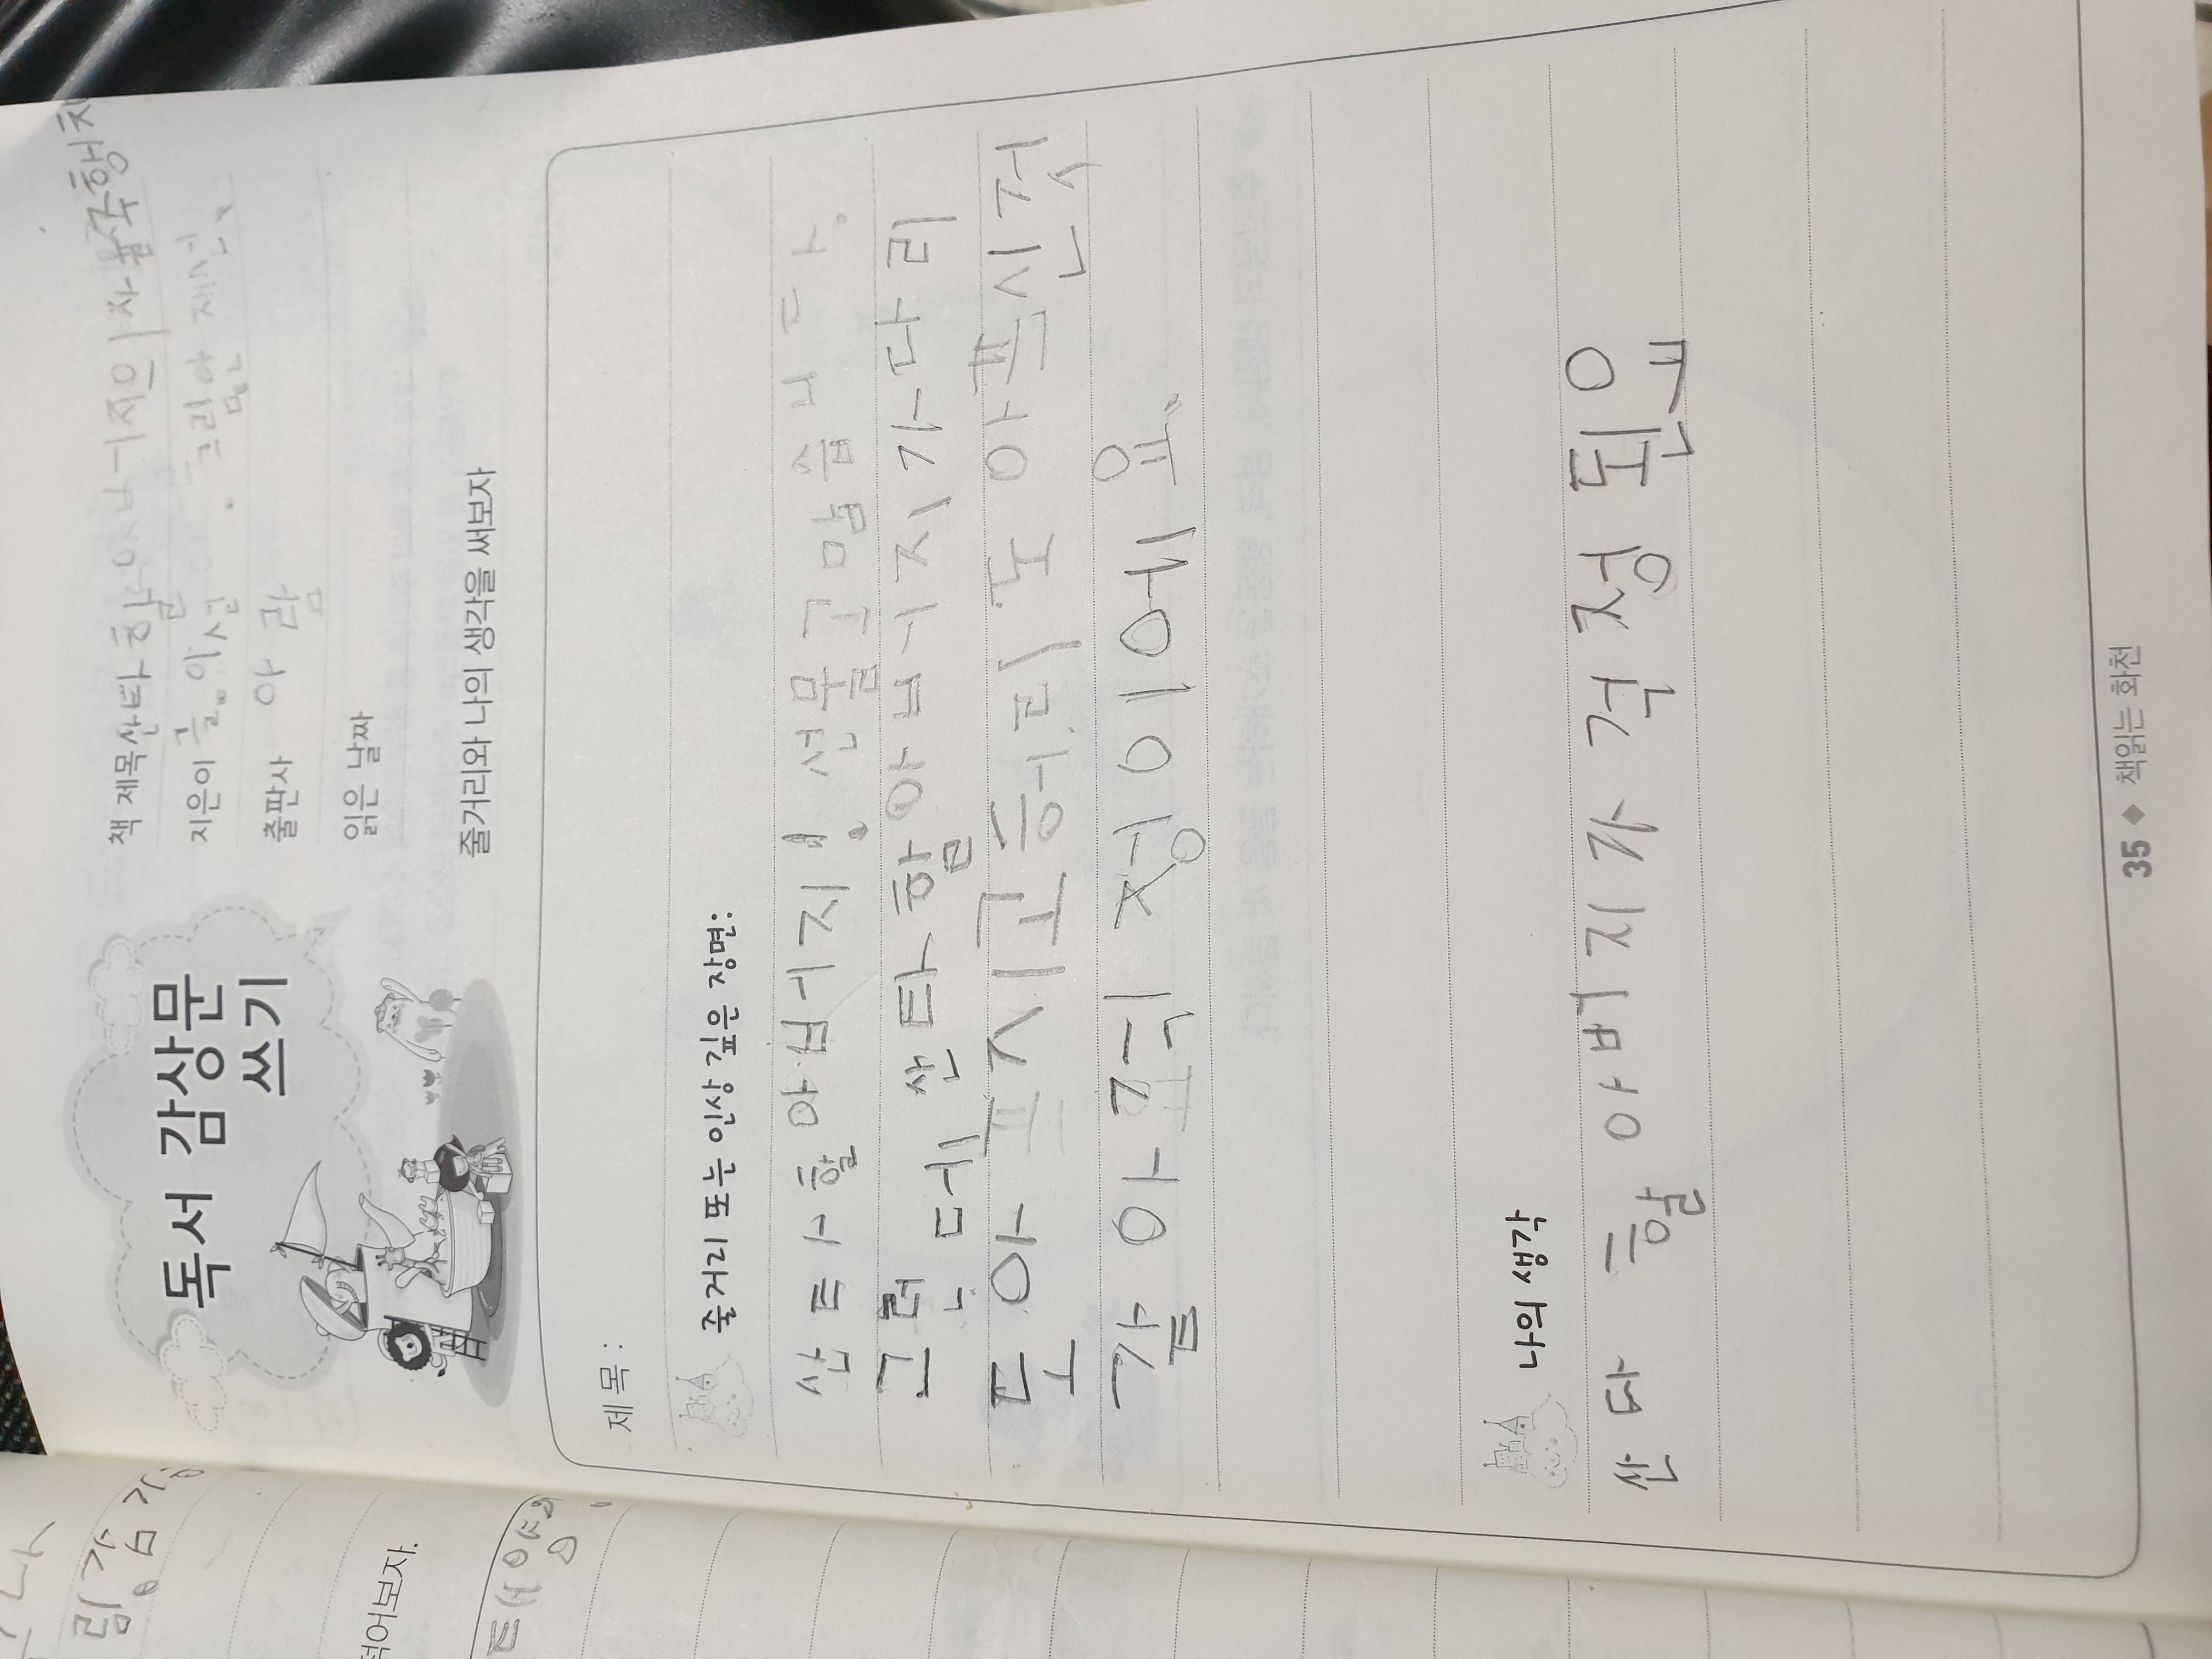 림.감
적어보자.
태양
독서 감상문
쓰기
책 제목 산타 할아버지의 자율주행차
지은이 글. 그림.안 재선.
출판사 아람
읽은 날짜
줄거리와 나의 생각을 써보자
제목 :
줄거리 또는 인상 깊은 장면:
산타할아버지! 선물고맙습니다.
그런데 산타할아버지가다리
도아프지고허리도아픈신것
같아걱정이에요.
나의 생각
산타 할아버지가 걱정된요
35 ◆ 책읽는 화천